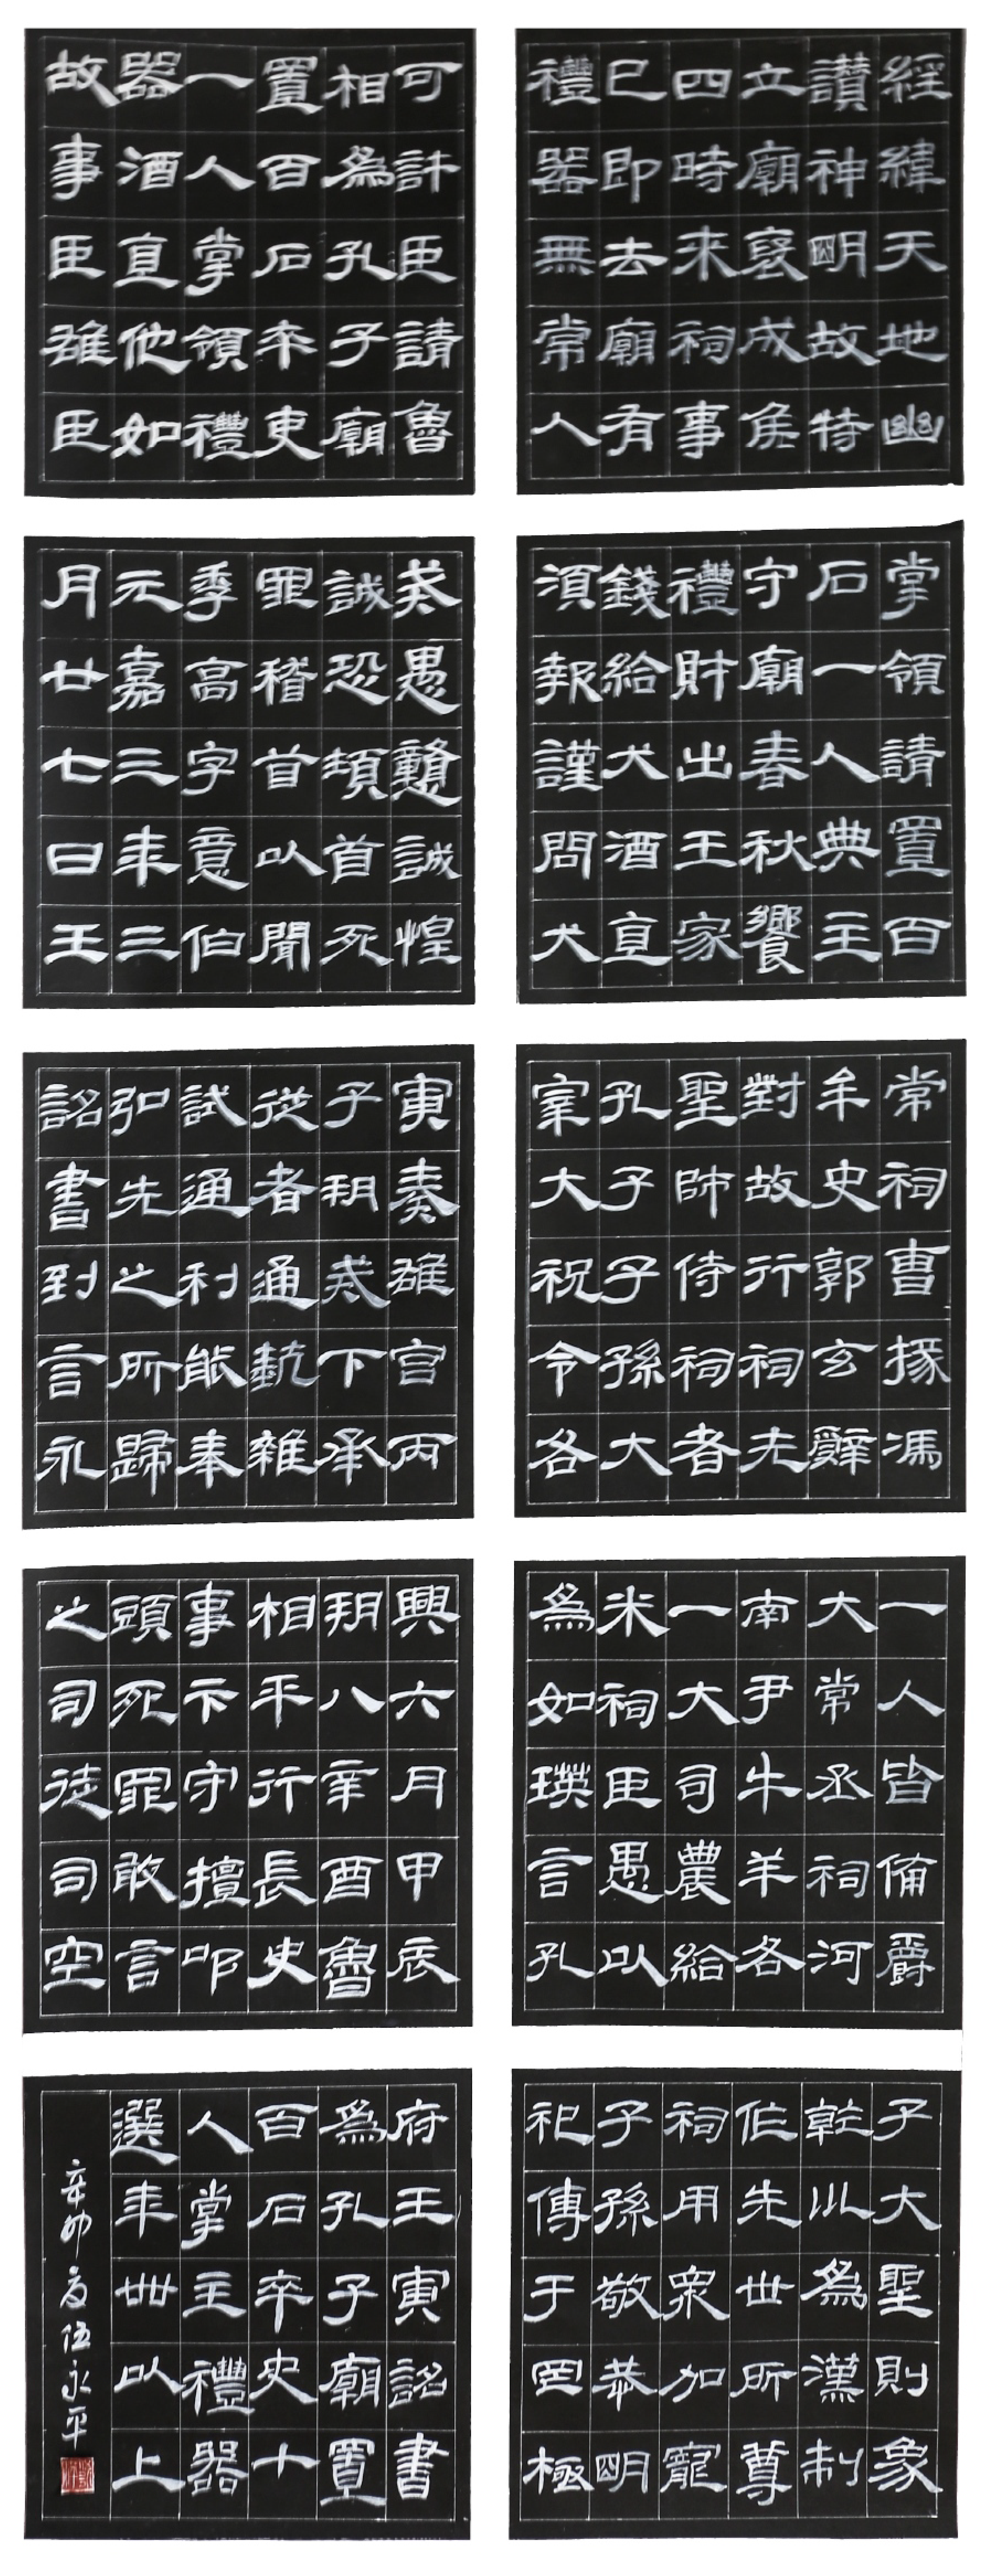 經緯天地幽
讃神明故特
立廟褒成侯
四時來祠事
已即去廟有
禮器無常人
掌領請置百
石一人典主
守廟春秋饗
禮財出王家
錢給犬酒直
須報謹問大
常祠曹掾馮
牟史郭玄辭
對故行祠先
聖師侍祠者
孔子子孫大
宰大祝令各
一人皆備爵
大常丞祠河
南尹牛羊各
一大司農給
米祠臣愚以
為如瑛言孔
子大聖則象
乾川為漢制
作先世所尊
祠用眾加寵
子孫敬恭明
祀傳于罔極
可許臣請魯
相為孔子廟
置百石卒吏
一人掌領禮
器酒直他如
故事臣雄臣
戒愚戇誠惶
誠恐頓首死
罪稽首以聞
季高字意伯
元嘉三年三
月廿七日王
寅奏雒宮丙
子朔恭下承
從者通雜
試通利能奉
弘先之所歸
詔書到言永
興六月甲辰
朔八辛酉魯
相平行長史
事卞守擅叩
頭死罪敢言
之司徒司空
府王寅詔書
為孔子廟置
百石卒史十
人掌主禮器
選年卌以上
辛卯夏伍永平